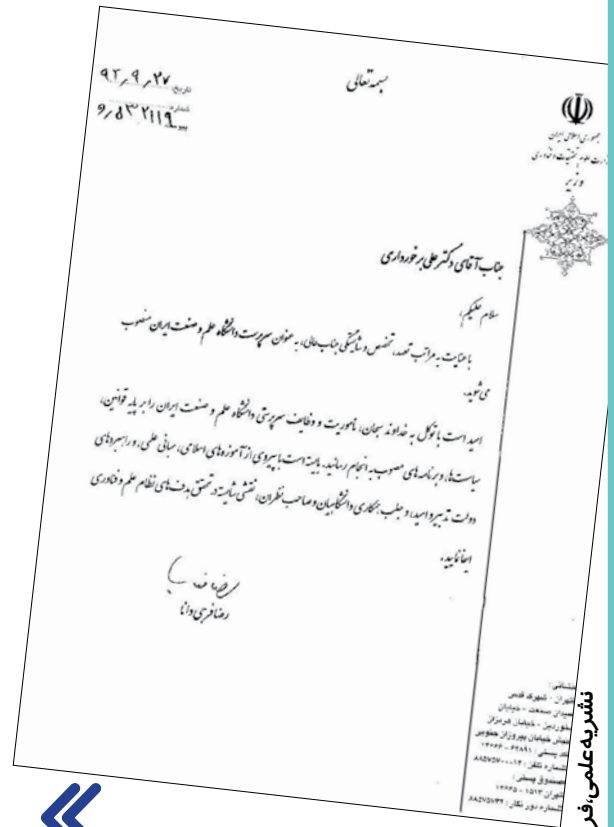 بسمه تعالی
تاریخ: ۹۲٫۹٫۲۷
شماره: ۹٫۵۳۲۱۱۹
جمهوری اسلامی ایران
وزارت علوم تحقیقات و فناوری
وزیر
جناب آقای دکتر علی برخورداری
سلام علیکم،
با عنایت به مراتب تعهد، تخصص و شایستگی جناب‌عالی، به عنوان سرپرست دانشگاه علم و صنعت ایران منصوب
می شوید.
امید است با توکل به خداوند سبحان، ماموریت و وظایف سرپرستی دانشگاه علم و صنعت ایران را بر پایه قوانین،
سیاست‌ها، و برنامه های مصوب به انجام رسانید. بایسته است با پیروی از آموزه های اسلامی، مبانی علمی، و راهبردهای
دولت تدبیر و امید، و جلب همکاری دانشگاهیان و صاحب نظران، نقشی شایسته در تحقق هدف های نظام علم و فناوری
ایفا نمایید.
رضا فرجی دانا
نشانی:
تهران - شهرک قدس
میدان صنعت - خیابان
خوردین - خیابان هرمزان
نبش خیابان پیروزان جنوبی
کد پستی: ۶۴۸۹۱ - ۱۴۶۶۶
صندوق پستی:
تهران ۱۵۱۳ - ۱۴۶۶۵
شماره دور نگار:
نشریه علمی، فر